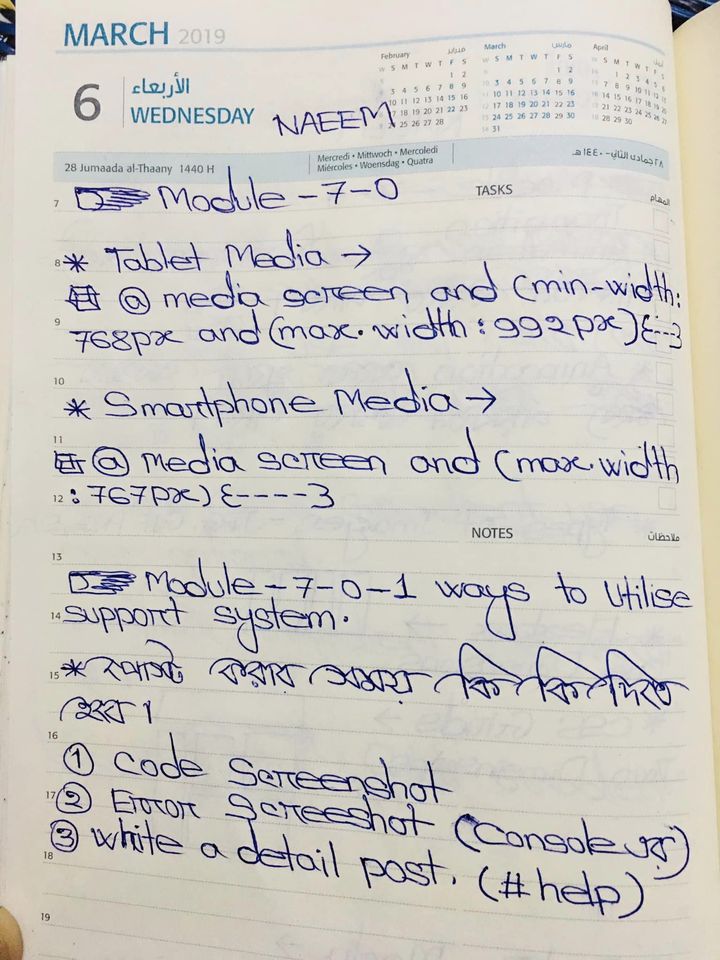 MARCH 2019
6
الأربعاء
WEDNESDAY
NAEEM
February فبراير
W S M T W T F S
1 2
3 4 5 6 7 8 9
10 11 12 13 14 15 16
17 18 19 20 21 22 23
24 25 26 27 28
March مارس
W S M T W T F S
1 2
3 4 5 6 7 8 9
10 11 12 13 14 15 16
17 18 19 20 21 22 23
24 25 26 27 28 29 30
31
April
W S M T W T F S
1 2 3 4 5 6
7 8 9 10 11 12 13
14 15 16 17 18 19 20
21 22 23 24 25 26 27
28 29 30
28 Jumaada al-Thaany 1440 H
Mercredi • Mittwoch • Mercoledi
Miércoles • Woensdag • Quatra
٢٨ جمادى الثاني - ١٤٤٠ هـ
TASKS
المهام
7 Module-7-0
8 * Tablet Media →
@ media screen and (min-width:
9 768px and (max.width:992px){---}
10
* Smartphone Media →
11
@ media screen and (max.width
12 :767px) {----}
NOTES
ملاحظات
13
Module-7-0-1 ways to utilise
14 support system.
15 * পোস্ট করার সময় কি কি দিতে
হবে।
16
① Code Screenshot
17 ② Error Screeshot (Console এর)
③ write a detail post. (#help)
18
19